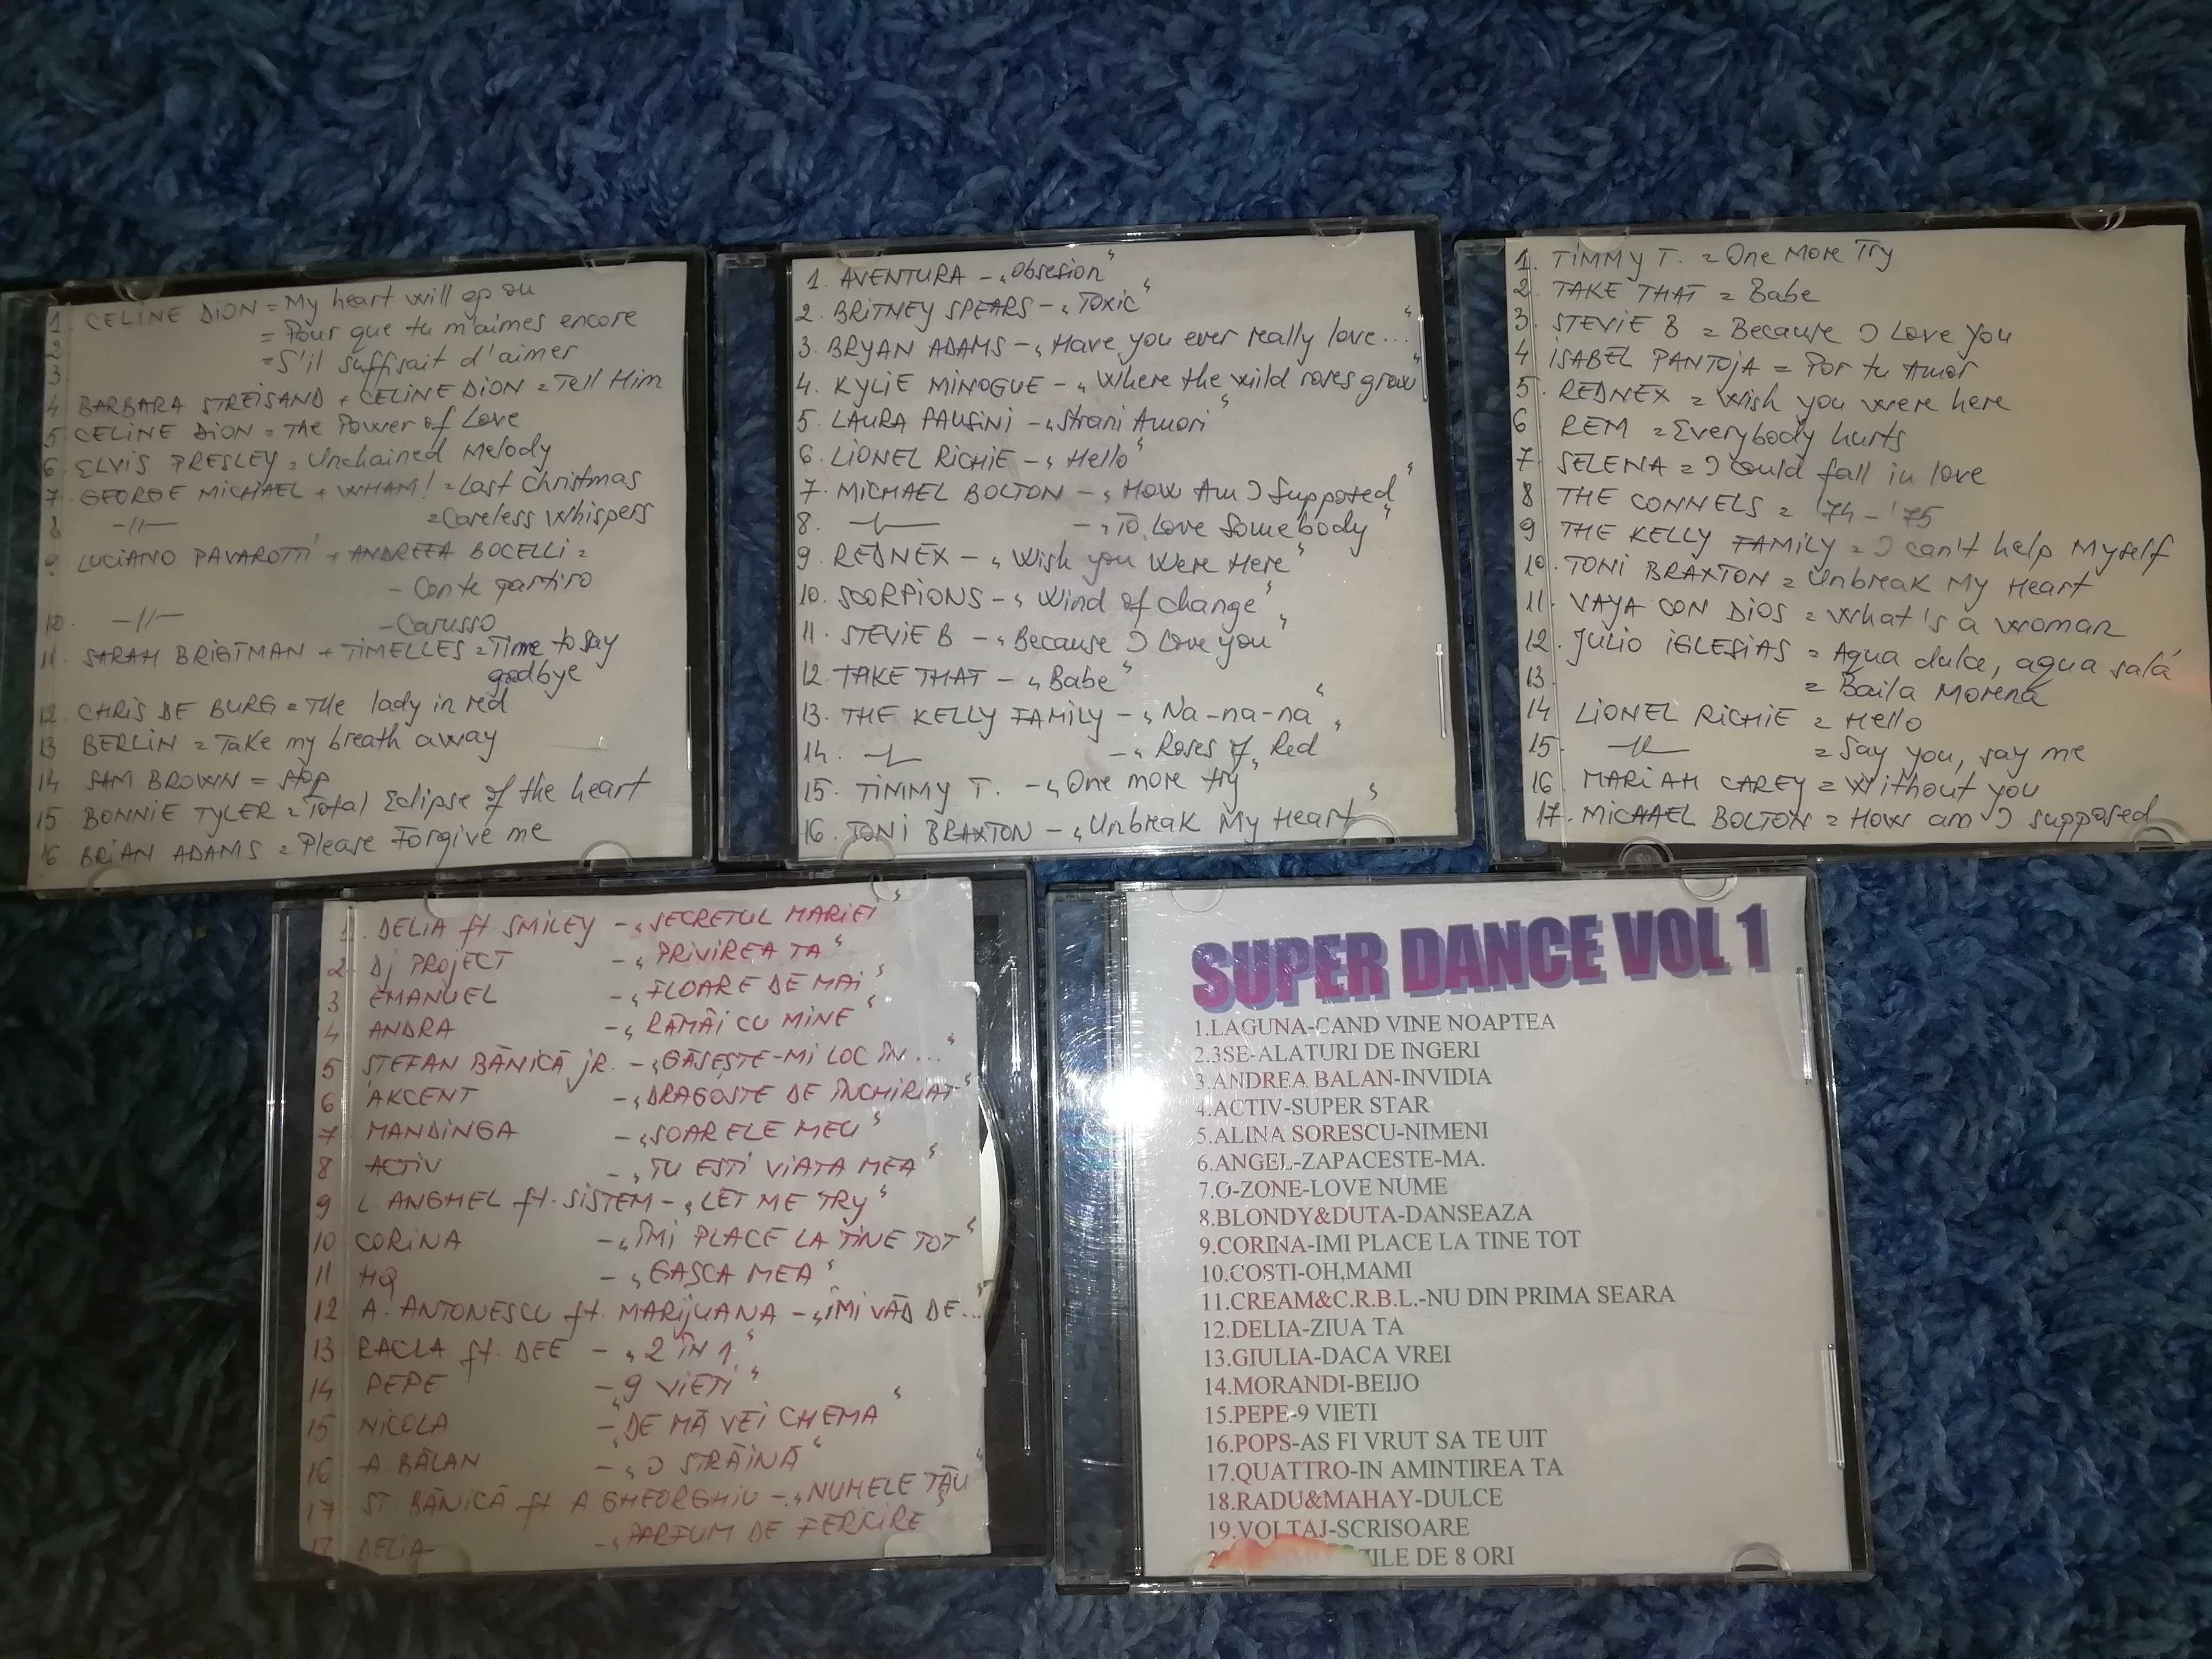 1 CELINE DION = My heart will go on
2 = Pour que tu m'aimes encore
3 = S'il suffisait d'aimer
4 BARBARA STREISAND + CELINE DION = Tell Him
5 CELINE DION = The Power of Love
6 ELVIS PRESLEY = Unchained Melody
7 GEORGE MICHAEL + WHAM! = Last Christmas
8 -//- = Careless Whispers
9 LUCIANO PAVAROTTI + ANDREEA BOCELLI =
- Conte partiro
10. -//- - Carusso
11 SARAH BRIGTMAN + TIMELLES = Time to say
goodbye
12 CHRIS DE BURG = The lady in red
13 BERLIN = Take my breath away
14 SAM BROWN = Stop
15 BONNIE TYLER = Total Eclipse of the heart
16 BRIAN ADAMS = Please Forgive me
1. AVENTURA - „Obsesion"
2. BRITNEY SPEARS - „Toxic"
3. BRYAN ADAMS - „Have you ever really love..."
4. KYLIE MINOGUE - „Where the wild roses grow"
5. LAURA PAUSINI - „Strani Amori"
6. LIONEL RICHIE - „Hello"
7. MICHAEL BOLTON - „How Am I Supposed"
8. -//- - „To Love Somebody"
9. REDNEX - „Wish you Were Here"
10. SCORPIONS - „Wind of change"
11. STEVIE B - „Because I Love you"
12. TAKE THAT - „Babe"
13. THE KELLY FAMILY - „Na-na-na"
14. -//- - „Roses of Red"
15. TIMMY T. - „One more try"
16. TONI BRAXTON - „Unbreak My Heart"
1. TIMMY T. = One More Try
2. TAKE THAT = Babe
3. STEVIE B = Because I Love You
4 ISABEL PANTOJA = Por tu Amor
5. REDNEX = Wish you were here
6 REM = Everybody hurts
7 SELENA = I could fall in love
8 THE CONNELS = '74 - '75
9 THE KELLY FAMILY = I can't help Myself
10. TONI BRAXTON = Unbreak My Heart
11. VAYA CON DIOS = What's a woman
12. JULIO IGLESIAS = Agua dulce, agua salá
13 = Baila Morena
14 LIONEL RICHIE = Hello
15 -//- = Say you, say me
16 MARIAH CAREY = Without you
17. MICHAEL BOLTON = How am I supposed
1. DELIA ft SMILEY - „SECRETUL MARIEI"
2 Dj PROJECT - „PRIVIREA TA"
3 EMANUEL - „FLOARE DE MAI"
4 ANDRA - „RĂMÂI CU MINE"
5 STEFAN BĂNICĂ JR. - „GĂSEȘTE-MI LOC ÎN..."
6 AKCENT - „DRAGOSTE DE ÎNCHIRIAT"
7 MANDINGA - „SOARELE MEU"
8 ACTIV - „TU ESTI VIATA MEA"
9 L. ANGHEL ft. SISTEM - „LET ME TRY"
10 CORINA - „ÎMI PLACE LA TINE TOT"
11 HQ - „GASCA MEA"
12 A. ANTONESCU ft. MARIJUANA - „ÎMI VĂD DE..."
13 RACLA ft. DEE - „2 ÎN 1"
14 PEPE - „9 VIETI"
15 NICOLA - „DE MĂ VEI CHEMA"
16 A. BĂLAN - „O STRĂINĂ"
17 ST. BĂNICĂ ft A GHEORGHIU - „NUMELE TĂU"
17 DELIA - „PARFUM DE FERICIRE"
SUPER DANCE VOL 1
1.LAGUNA-CAND VINE NOAPTEA
2.3SE-ALATURI DE INGERI
3.ANDREA BALAN-INVIDIA
4.ACTIV-SUPER STAR
5.ALINA SORESCU-NIMENI
6.ANGEL-ZAPACESTE-MA.
7.O-ZONE-LOVE NUME
8.BLONDY&DUTA-DANSEAZA
9.CORINA-IMI PLACE LA TINE TOT
10.COSTI-OH,MAMI
11.CREAM&C.R.B.L.-NU DIN PRIMA SEARA
12.DELIA-ZIUA TA
13.GIULIA-DACA VREI
14.MORANDI-BEIJO
15.PEPE-9 VIETI
16.POPS-AS FI VRUT SA TE UIT
17.QUATTRO-IN AMINTIREA TA
18.RADU&MAHAY-DULCE
19.VOLTAJ-SCRISOARE
DE 8 ORI